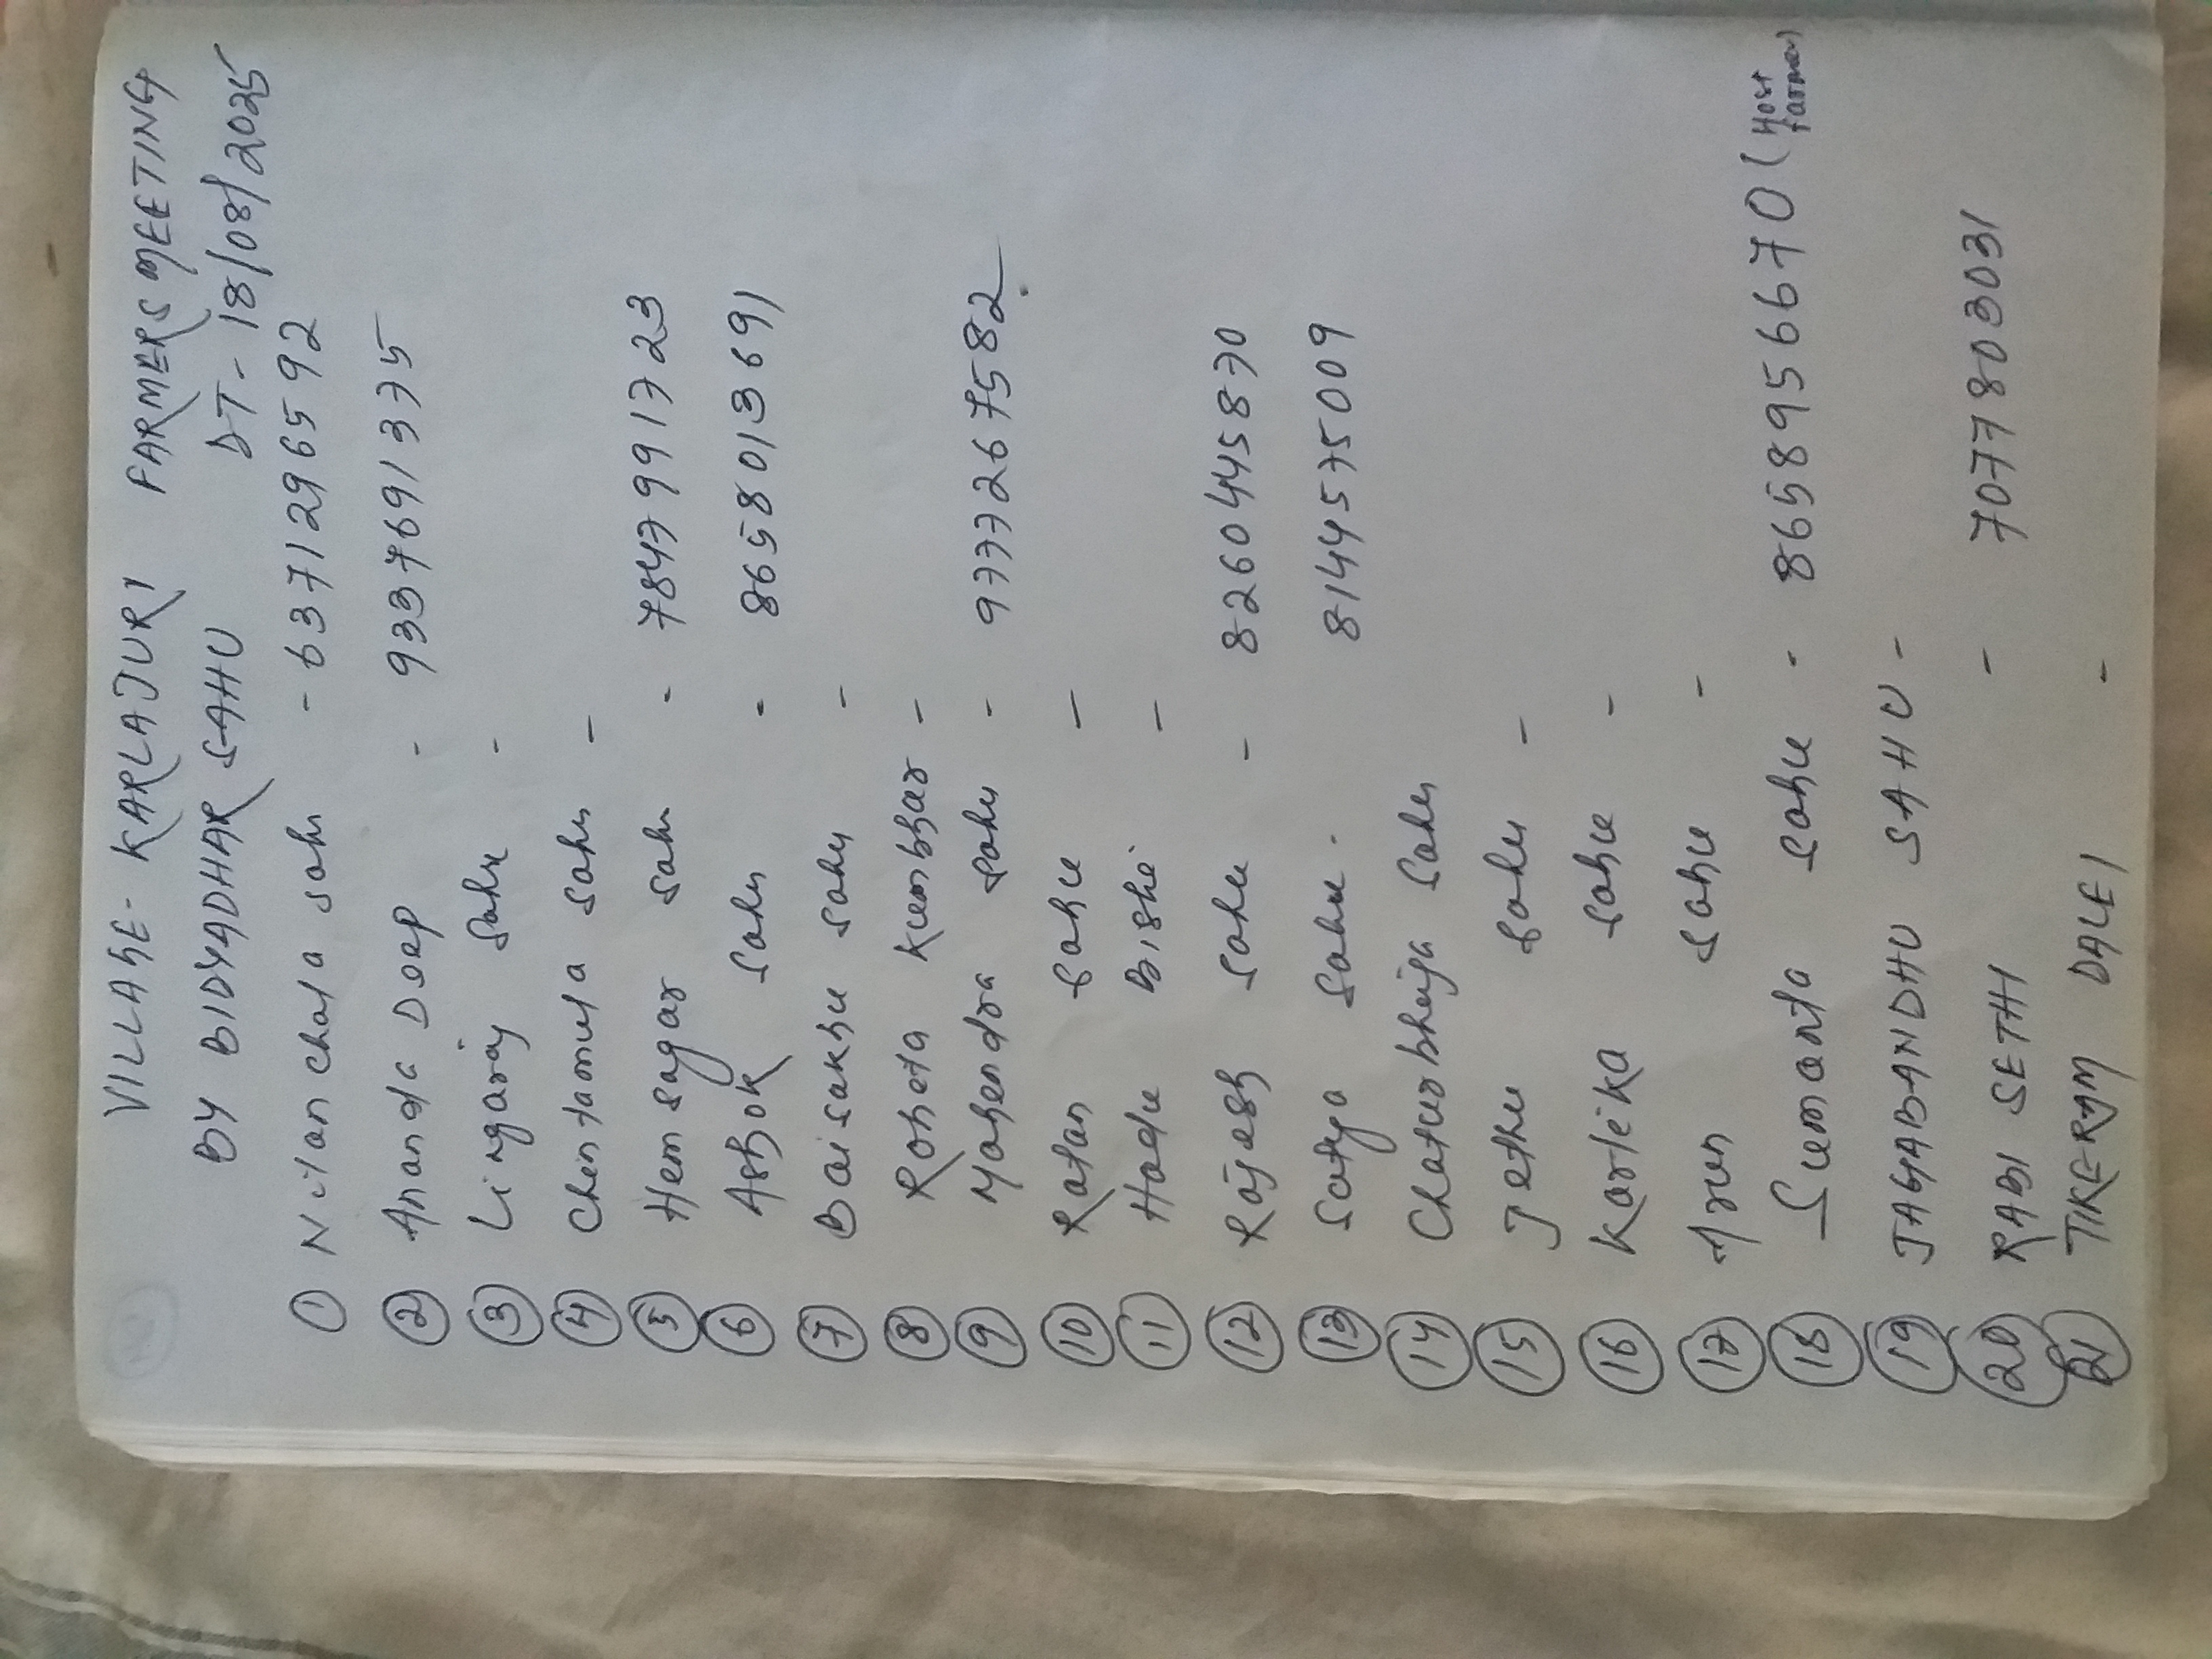 VILLAGE- KARLAJURI FARMERS MEETING
BY BIDYADHAR SAHU DT- 18/08/2025
① Nilanchala Sahu - 6371296592
② Ananda Deep - 9337691375
③ Lingaraj Sahu -
④ Chentamula Sahu -
⑤ Hemsagar Sahu - 7847991723
⑥ Ashok Sahu - 8658013691
⑦ Baisakhu Sahu -
⑧ Roheta Kumbhar -
⑨ Mahendra Sahu - 9777267582
⑩ Ratan Sahu -
⑪ Hadu Bishi -
⑫ Rajesh Sahu - 8260445870
⑬ Satya Sahu. 8144575009
⑭ Chaturbhuja Sahu
⑮ Jethu Sahu -
⑯ Kartika Sahu -
⑰ Arun Sahu -
⑱ Sumanta Sahu - 8658956670 (Host farmer)
⑲ JAGABANDHU SAHU -
⑳ RABI SETHI - 7077803031
㉑ TIKERAM DALEI -